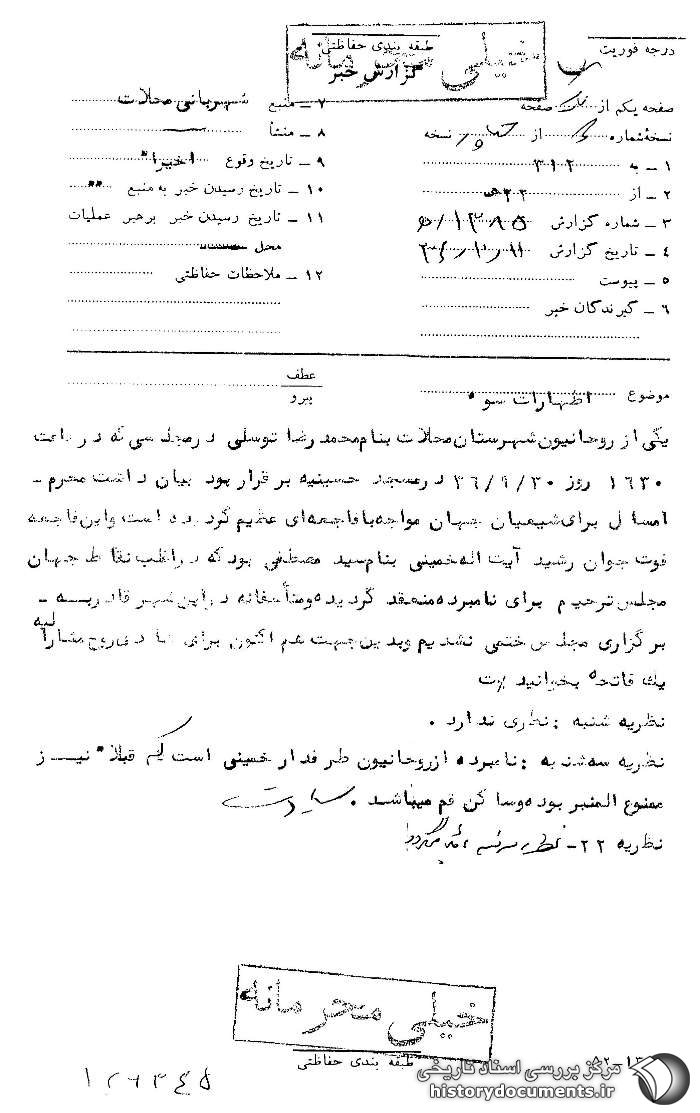 درجه فوریت
طبقه بندی حفاظتی
خیلی محرمانه
گزارش خبر
صفحه یکم از یک صفحه
نسخه شماره از نسخه
۱ ـ به ۳۱۲
۲ ـ از ۲۲ ه
۳ ـ شماره گزارش ۱۲۸۵/ه
۴ ـ تاریخ گزارش ۳۶/۱۰/۱۱
۵ ـ پیوست
۶ ـ گیرندگان خبر
۷ ـ منبع شهربانی محلات
۸ ـ منشأ
۹ ـ تاریخ وقوع اخیراً
۱۰ ـ تاریخ رسیدن خبر به منبع "
۱۱ ـ تاریخ رسیدن خبر برهبر عملیات
محل
۱۲ ـ ملاحظات حفاظتی
عطف
پیرو
موضوع اظهارات سوء
یکی از روحانیون شهرستان محلات بنام محمد رضا توسلی در مجلسی که در ساعت
۱۶۳۰ روز ۳۶/۹/۳۰ در مسجد حسینیه برقرار بود بیان داشت محرم ـ
امسال برای شیعیان جهان مواجه با فاجعه‌ای عظیم گردیده است و این فاجعه
فوت جوان رشید آیت اله خمینی بنام سید مصطفی بود که در اغلب نقاط جهان
مجلس ترحیم برای نامبرده منعقد گردیده و متأسفانه در این شهر قادر به ـ
برگزاری مجلس ختمی نشدیم و بدین جهت هم اکنون برای شادی روح مشارالیه
یک فاتحه بخوانید
نظریه شنبه : نظری ندارد .
نظریه سه‌شنبه : نامبرده از روحانیون طرفدار خمینی است که قبلاً نیز
ممنوع المنبر بوده و ساکن قم میباشد .
نظریه ۲۲ ـ نظریه سه‌شنبه تأیید میگردد
خیلی محرمانه
طبقه بندی حفاظتی
۵۲-۱۳
۱۲۶۳۴۵
مرکز بررسی اسناد تاریخی
historydocuments.ir